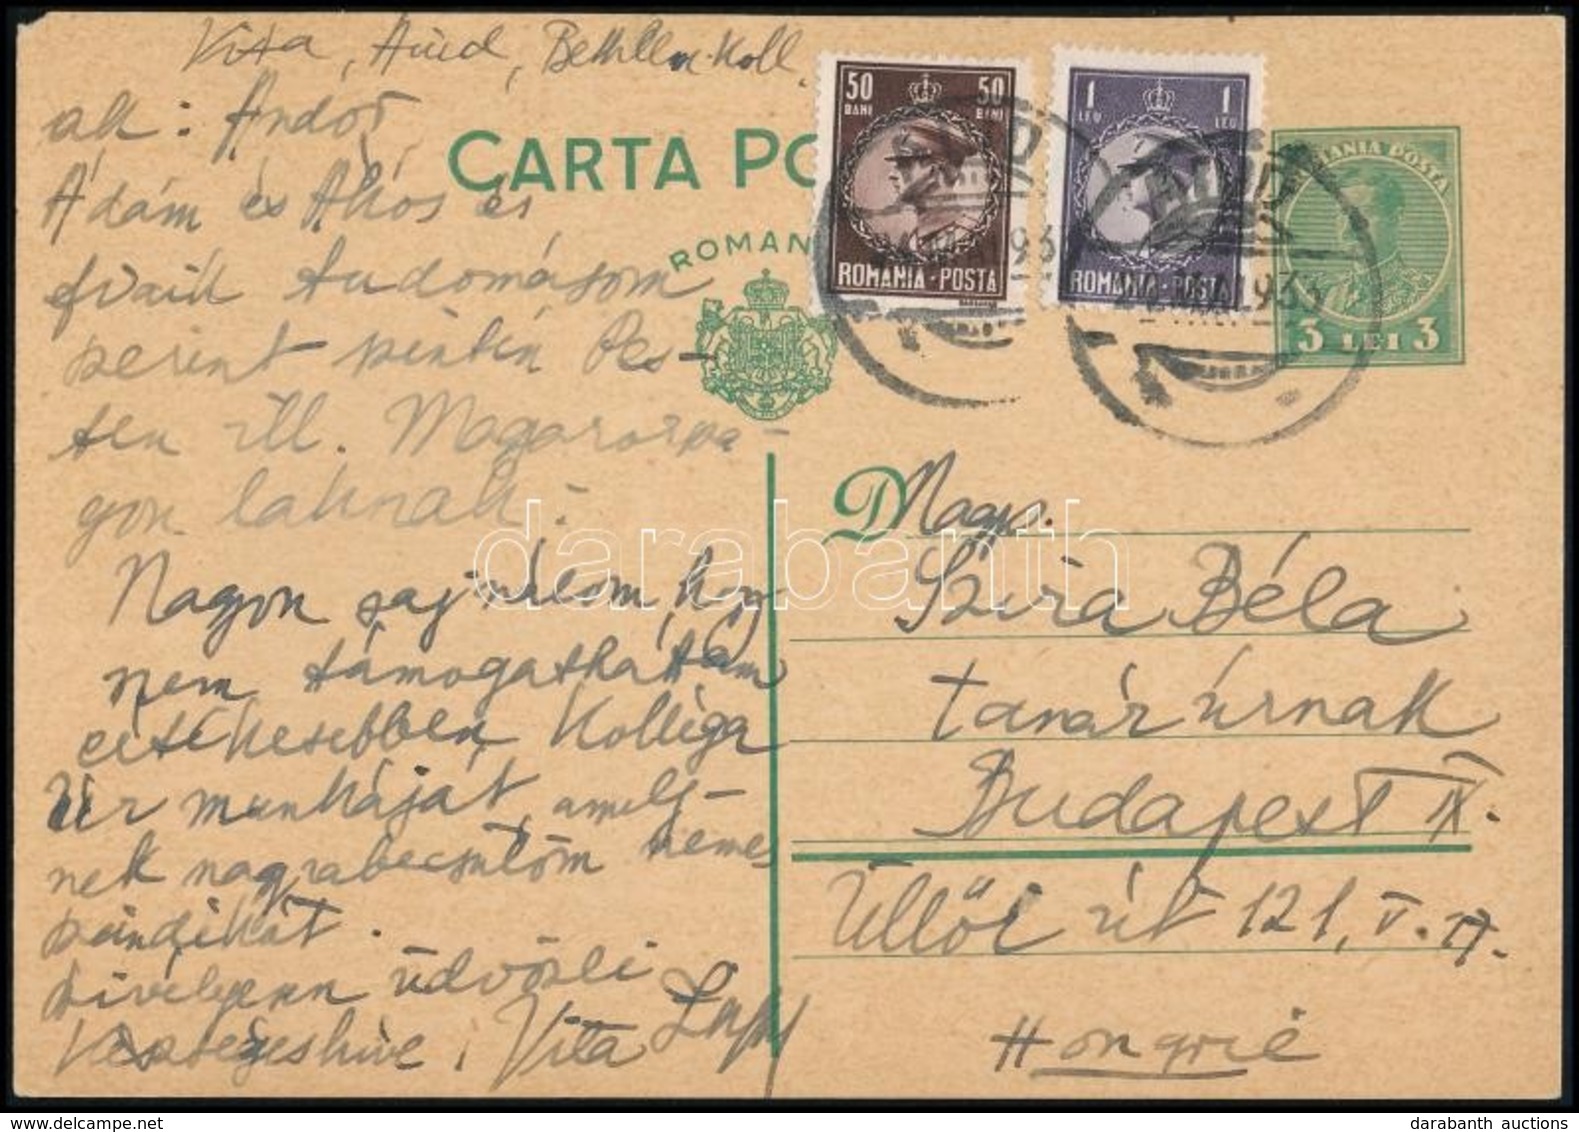 Vita, Aiud, Bethlen-Koll.
ak: Andor
Ádám és Ákos és
fiaik tudomásom
szerint szintén Pes-
ten ill. Magarorszá-
gon laknak.
Nagyon sajnálom, hogy
nem támogathattam
értékesebben Kolléga
Úr munkáját, amely-
nek nagyrabecsülöm nemes
szándikát.
Szívélyesen üdvözli
Vita Zsigm
CARTA PO
ROMAN
50 BANI 50 BANI
ROMANIA·POSTA
1 LEU 1 LEU
ROMANIA·POSTA
ROMANIA POSTA
3 LEI 3
D Nags.
Szira Béla
tanár úrnak
Budapest IX.
Üllői út 121, V. 17.
Hongrie
darabanth
darabanth auctions
www.delcampe.net